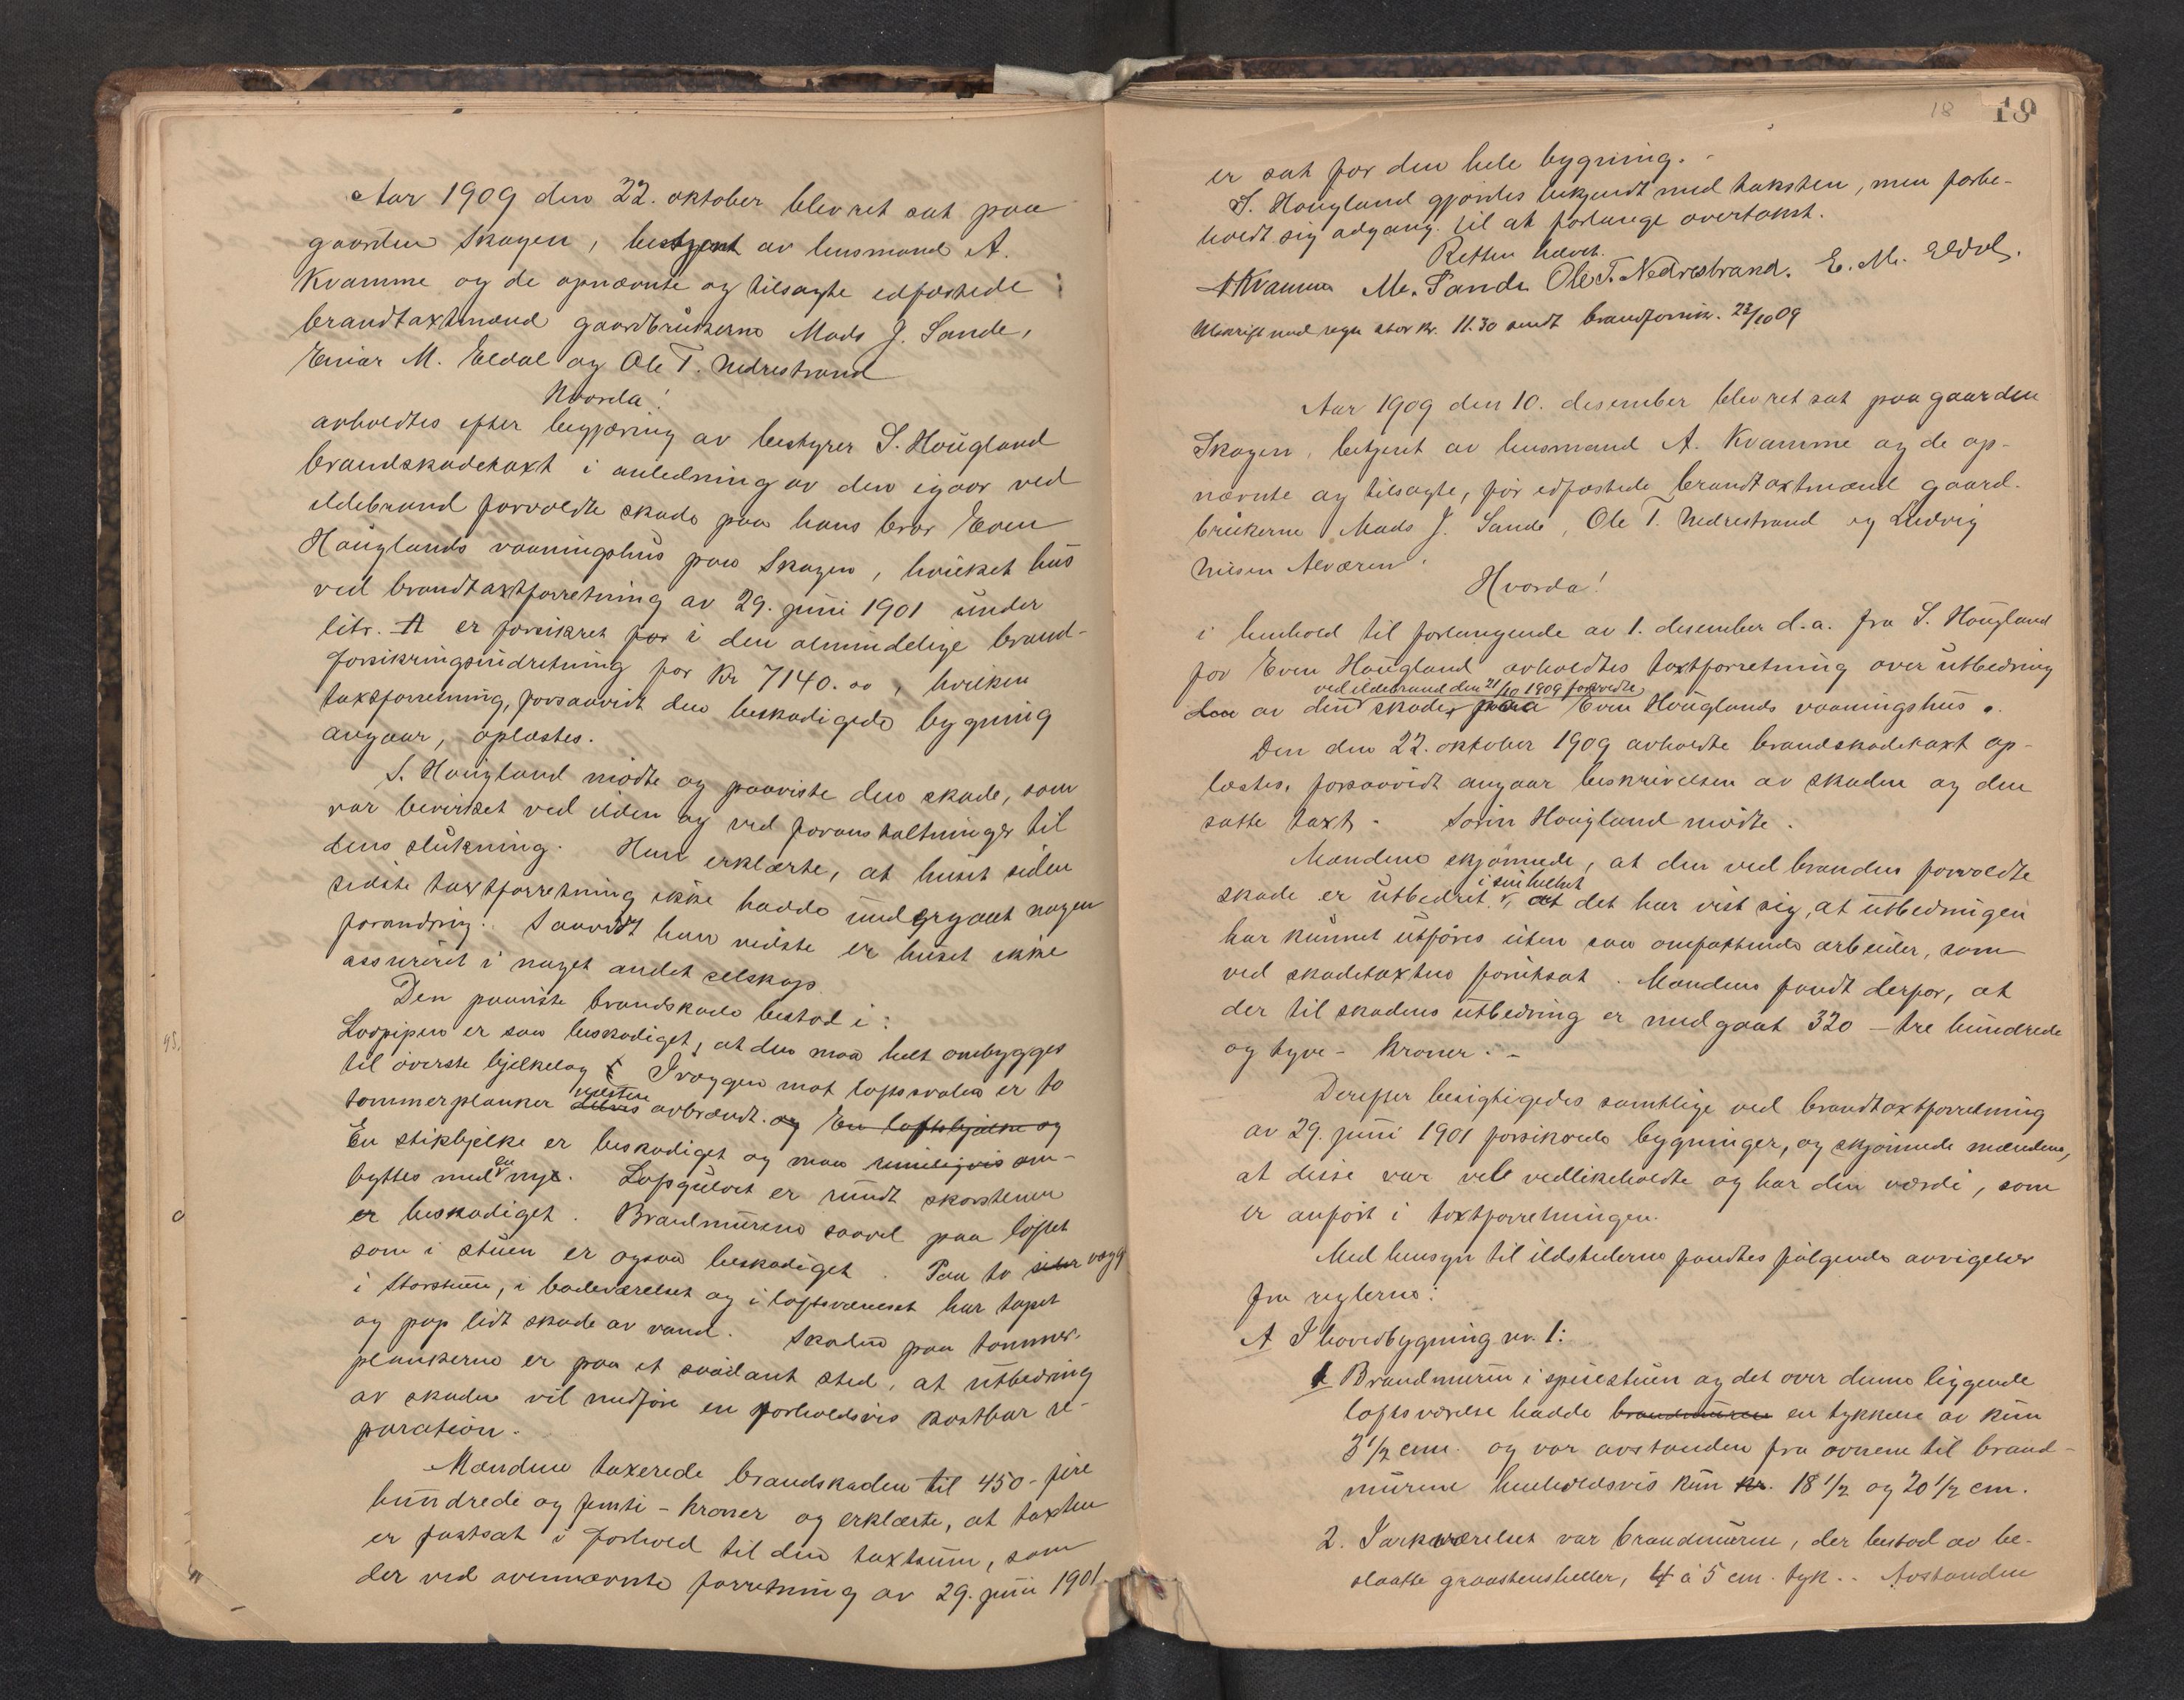 Aar 1909 den 22. oktober blev ret sat paa
gaarden Skagen, betjent av lensmand A.
Kvamme og de opnævnte og tilsagte edfæstede
brandtaxtmænd gaardbrukerne Mads J. Sande,
Einar M. Eldal og Ole T. Nedrestrand
Hvorda!
avholdtes efter begjæring av bestyrer S. Hougland
brandskadetaxt i anledning av den igaar ved
ildebrand forvoldte skade paa hans bror Even
Houglands vaaningshus paa Skagen, hvilket hus
ved brandtaxtforretning av 29. juni 1901 under
litr. A er forsikret for i den almindelige brand-
forsikringsindretning for Kr 7140.00, hvilken
taxtforretning, forsaavidt den beskadigede bygning
angaar, oplæstes.
S. Hougland mødte og paaviste den skade, som
var bevirket ved ilden og ved foranstaltninger til
dens slukning. Han erklærte, at huset siden
sidste taxtforretning ikke hadde undergaat nogen
forandring. Saavidt han vidste er huset ikke
assureret i noget andet selskap.
Den paaviste brandskade bestod i:
Lovpipen er saa beskadiget, at den maa helt ombygges
til øverste bjelkelag. I væggen mot loftsvalen er to
tømmerplanker delvis næsten avbrændt. og En loftsbjelke og
En stikbjelke er beskadiget og maa rimeligvis om-
byttes med en nye. Lofsgulvet er rundt skorstenen
er beskadiget. Brandmurene saavel paa loftet
som i stuen er ogsaa beskadiget. Paa to sider vægg
i storstuen, i badeværelset og i loftsværelset har tapet
og pap lidt skade av vand. Skaden paa tømmer-
plankerne er paa et saadant sted, at utbedring
av skaden vil medføre en forholdsvis kostbar re-
paration.
Mændene taxerede brandskaden til 450 - fire
hundrede og femti - kroner og erklærte, at taxten
er fastsat i forhold til den taxtsum, som
der ved ovennævnte forretning av 29. juni 1901
18 19
er sat for den hele bygning. -
S. Hougland gjordes bekjendt med taksten, men forbe-
holdt sig adgang til at forlange overtakst.
Retten hævet.
A Kvamme M. Sande Ole T. Nedrestrand. E. M. Eldal.
Utskrift med regn. stor kr. 11.30 sendt brandforsik. 22/10 09
Aar 1909 den 10. desember blev ret sat paa gaarden
Skagen, betjent av lensmand A. Kvamme og de op-
nævnte og tilsagte, før edfæstede brandtaxtmænd gaard-
brukerne Mads J. Sande, Ole T. Nedrestrand og Ludvig
Nilsen Alværen.
Hvorda!
i henhold til forlangende av 1. desember d.a. fra S. Hougland
for Even Hougland avholdtes taxtforretning over utbedring
ved ildebrand den 21/10 1909 forvoldte
den av den skade, paa Even Houglands vaaningshus.
Den den 22. oktober 1909 avholdte brandskadetaxt op-
læstes, forsaavidt angaar beskrivelsen av skaden og den
satte taxt. - Sørin Hougland mødte.
Mændene skjønnede, at den ved branden forvoldte
skade er utbedret i sin helhet, at det har vist sig, at utbedringen
har kunnet utføres uten saa omfattende arbeider, som
ved skadetaxten forutsat. Mændene fandt derfor, at
der til skadens utbedring er medgaat 320 - tre hundrede
og tyve - kroner. -
Derefter besigtigedes samtlige ved brandtaxtforretning
av 29. juni 1901 forsikrede bygninger, og skjønnede mændene,
at disse var vel vedlikeholdte og har den værdi, som
er anført i taxtforretningen.
Med hensyn til ildstederne fandtes følgende avvigelser
fra reglerne:
A I hovedbygning nr. 1:
1 Brandmuren i spisestuen og det over denne liggende
loftsværelse hadde brandmuren en tykkelse av kun
3 1/2 cm. og var avstanden fra ovnene til brand-
murene henholdsvis kun kr. 18 1/2 og 20 1/2 cm.
2. I arkværelset var brandmuren, der bestod av be-
slaatte graastensheller, 4 à 5 cm. tyk. - Avstanden